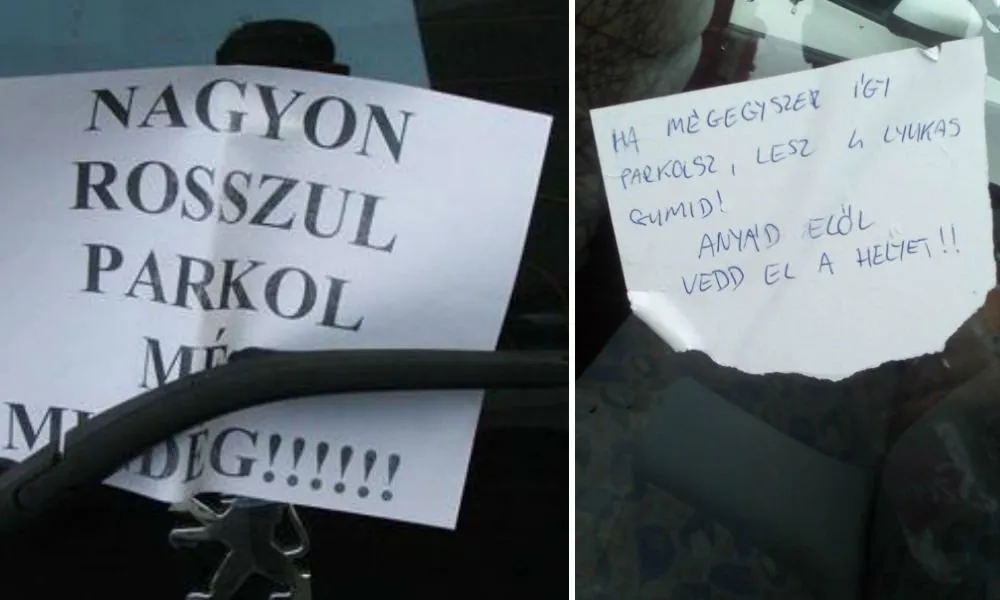 NAGYON
ROSSZUL
PARKOL
MÉG
MINDEG!!!!!!
HA MÉGEGYSZER ÍGY
PARKOLSZ, LESZ 4 LYUKAS
GUMID!
ANYÁD ELŐL
VEDD EL A HELYET!!